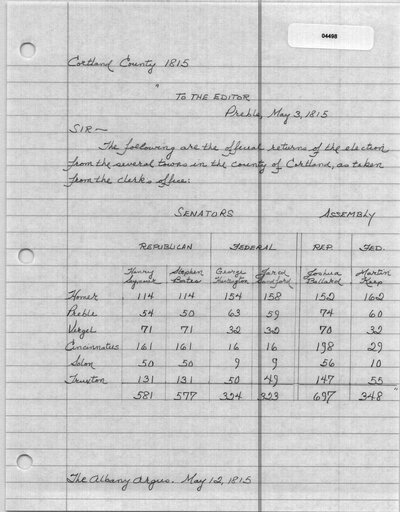 04498
Cortland County 1815
"
TO THE EDITOR
Preble, May 3, 1815
SIR~
The following are the official returns of the election
from the several towns in the county of Cortland, as taken
from the clerk's office:
SENATORS ASSEMBLY
REPUBLICAN FEDERAL REP. FED.
Henry Stephen George Jared Joshua Martin
Bates Huntington Sandford Ballard Keep
Homer 114 114 154 158 152 162
Preble 54 50 63 59 74 60
Virgel 71 71 32 32 70 32
Cincinnatus 161 161 16 16 198 29
Solon 50 50 9 9 56 10
Truxton 131 131 50 49 147 55
581 577 324 323 697 348 "
The Albany Argus. May 12, 1815